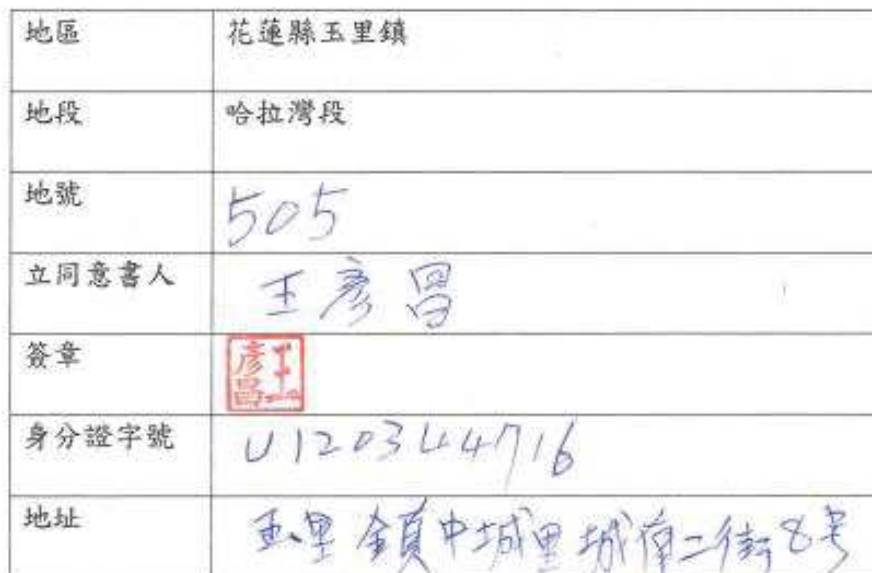 地區 花蓮縣玉里鎮
地段 哈拉灣段
地號 505
立同意書人 王彥昌
簽章 王彥昌
身分證字號 U120344716
地址 玉里鎮中城里城東二街8号